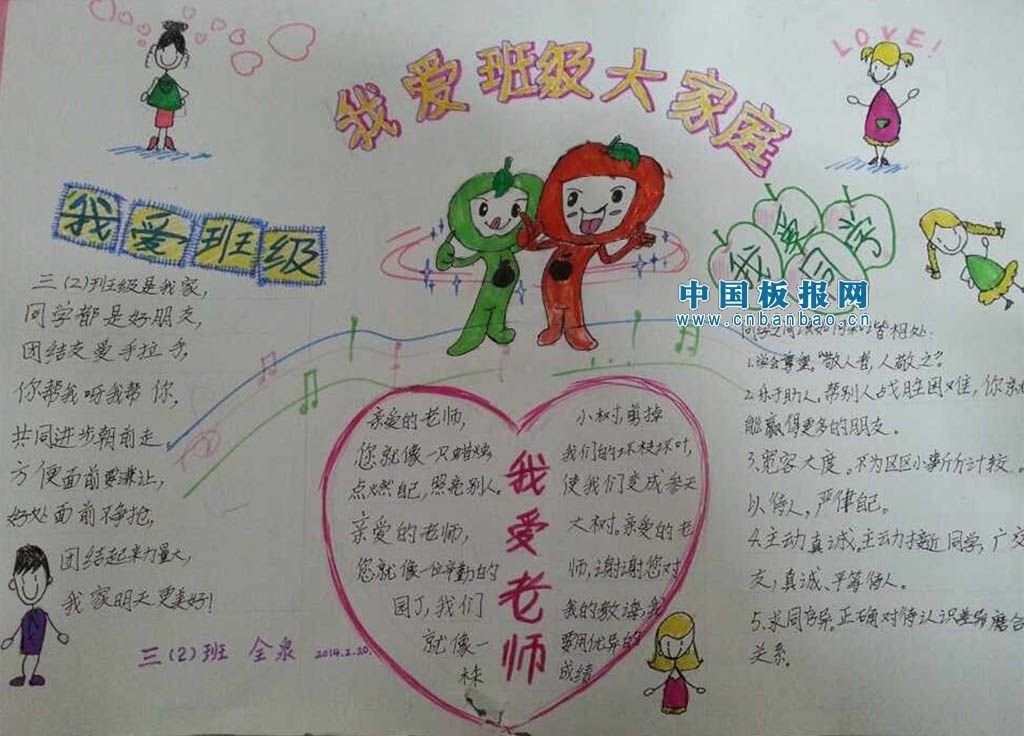 LOVE!
我爱班级大家庭
我爱班级
三(2)班级是我家,
同学都是好朋友,
团结友爱手拉手,
你帮我呀我帮你,
共同进步朝前走
方便面前要谦让,
好处面前不争抢,
团结起来力量大,
我家明天更美好!
三(2)班 全泉 2014.2.20.
我爱老师
亲爱的老师,
您就像一只蜡烛
点燃自己,照亮别人。
亲爱的老师,
您就像一位辛勤的
园丁,我们
就像一
棵
小树,剪掉
我们的坏枝坏叶,
使我们变成参天
大树。亲爱的老
师,谢谢您对
我的教诲,我
要用优异的
成绩
我爱同学
中国板报网
www.cnbanbao.cn
皆相处:
1.学会尊重,“敬人者,人敬之”。
2.乐于助人,帮别人战胜困难,你就
能赢得更多的朋友。
3.宽容大度。不为区区小事斤斤计较。
以待人,严律己。
4.主动真诚。主动接近同学,广交
友,真诚、平等待人。
5.求同存异。正确对待认识差异磨合
关系。